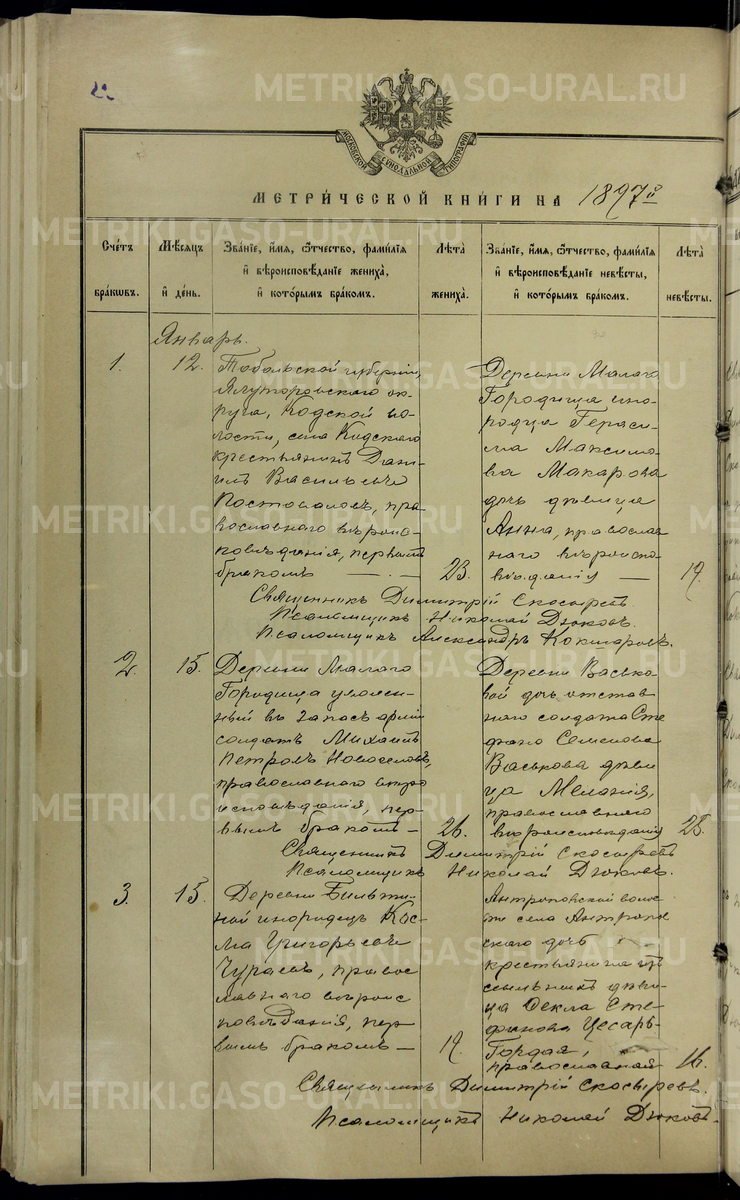 22
МОСКОВСКОЙ СѴНОДАЛЬНОЙ ТИПОГРАФІИ
МЕТРИ́ЧЕСКОЙ КНИ́ГИ НА 1897й
Сче́тъ бра́кѡвъ.
Мѣ́сяцъ и҆ де́нь.
Зва́нїе, и҆́мя, ѻ҆́тчество, фами́лїя
и҆ вѣроисповѣ́данїе жениха̀,
и҆ кото́рымъ бра́комъ.
Лѣта̀ жениха̀.
Зва́нїе, и҆́мя, ѻ҆́тчество, фами́лїя
и҆ вѣроисповѣ́данїе невѣ́сты,
и҆ кото́рымъ бра́комъ.
Лѣта̀ невѣ́сты.
Январь.
1.
12.
Тобольской губерніи,
Ялуторовскаго ок-
руга, Кодской во-
лости, села Кодскаго
крестьянинъ Дані-
илъ Васильевъ
Постоваловъ, пра-
вославнаго вѣроис-
повѣданія, первымъ
бракомъ —
23.
Деревни Малаго
Городища ино-
родца Гераси-
ма Максимо-
ва Макарова
дочь дѣвица
Анна, православ-
наго вѣроиспо-
вѣданія —
19.
Священникъ Димитрій Скосыревъ.
Псаломщикъ Николай Дюковъ.
Псаломщикъ Александръ Кокшаровъ.
2.
15.
Деревни Малаго
Городища уволен-
ный въ запасъ арміи
солдатъ Михаилъ
Петровъ Новоселовъ,
православнаго вѣро
исповѣданія, пер-
вымъ бракомъ —
26.
Деревни Васько-
вой дочь отстав-
наго солдата Сте
фана Семенова
Васькова дѣви-
ца Меланія,
православнаго
вѣроисповѣданія
25.
Священникъ Димитрій Скосыревъ
Псаломщикъ Николай Дюковъ.
3.
15.
Деревни
инородецъ Кос-
ма Григорьевъ
Чураевъ, правос
лавнаго вѣроис
повѣданія, пер
вымъ бракомъ —
19.
Антроповской волос
ти села Антропов
скаго дочь
крестьянина изъ
ссыльныхъ дѣви-
ца Фекла Сте-
фанова Цесарь-
Гордая,
православной
16.
Священникъ Димитрій Скосыревъ.
Псаломщикъ Николай Дюковъ.
METRIKI.GASO-URAL.RU